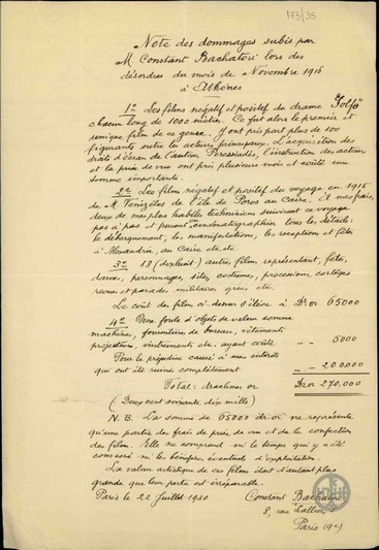 173/35
Note des dommages subis par
M Constant Bachatori lors des
désordres du mois de Novembre 1916
à Athènes
1º Les films négatif et positif du drame "Golfo"
chacun long de 1000 mètres. Ce fut alors le premier et
unique film de ce genre. Y ont pris part plus de 100
figurants outre les acteurs principaux. L'acquisition des
droits d'écran de l'auteur Peressiadès, l'instruction des acteurs
et la prise de vue ont pris plusieurs mois et coûté une
somme importante.
2º Les films négatif et positif du voyage en 1915
de M. Venizelos de l'île de Poros au Caire. A mes frais,
deux de mes plus habiles techniciens suivirent ce voyage
pas à pas et purent cinématographier tous les détails:
le débarquement, les manifestations, les réceptions et fêtes
à Alexandrie, au Caire etc. etc
3º 18 (dixhuit) autres films représentant, fêtes,
danses, personnages, sites, costumes, processions, cortèges
revues et parades militaires, grecs etc.
Le coût des films ci-dessus s'élève à Dr or 65000
4º Une foule d'objets de valeur comme
machines, fournitures de bureau, vêtements
projecteurs, instruments etc. ayant coûté - - 5000
Pour le préjudice causé à mes intérêts
qui ont été ruinés complètement - - 200.000
Total: drachmes or Dr or 270.000
(Deux cent soixante dix mille)
N.B. La somme de 65000 dr. or ne représente
qu'une partie des frais de prise de vue et de la confection
des films. Elle ne comprend ni le temps qui y a été
consacré ni les bénéfices éventuels d'exploitation.
La valeur artistique de ces films étant d'autant plus
grande que leur perte est irréparable.
Paris le 22 Juillet 1930 Constant Bachatori
8, rue Lallier
Paris (9e)